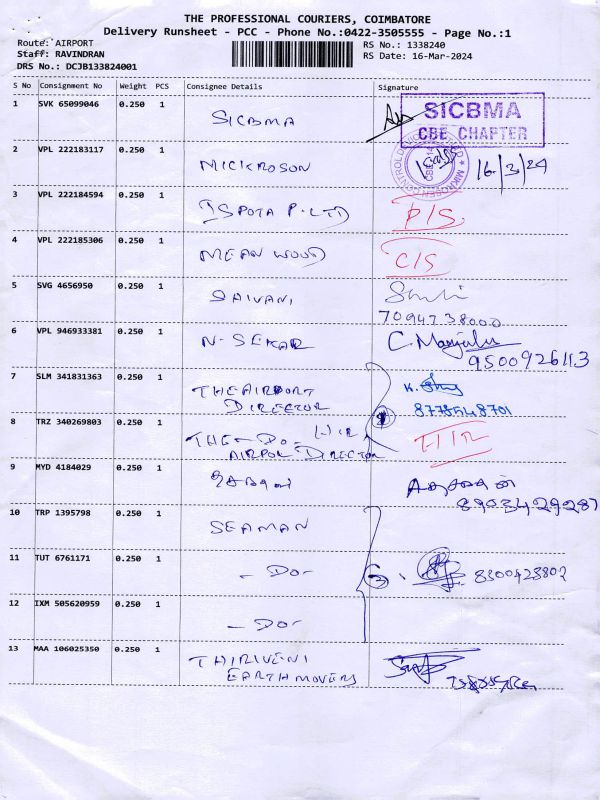 THE PROFESSIONAL COURIERS, COIMBATORE
Delivery Runsheet - PCC - Phone No.:0422-3505555 - Page No.:1
Route: AIRPORT
Staff: RAVINDRAN
DRS No.: DCJB133824001
RS No.: 1338240
RS Date: 16-Mar-2024
S No Consignment No Weight PCS Consignee Details Signature
1 SVK 65099046 0.250 1 SICBMA
SICBMA
CBE CHAPTER
2 VPL 222183117 0.250 1 MICKROSON 16/3/24
3 VPL 222184594 0.250 1 ISPOTA P.LTD P/S.
4 VPL 222185306 0.250 1 MEAN WOOD C/S
5 SVG 4656950 0.250 1 SAIVANI
7094738000
6 VPL 946933381 0.250 1 N-SEKAR C.
9500926113
7 SLM 341831363 0.250 1 THE AIRPORT
DIRECTOR
8778548701
8 TRZ 340269803 0.250 1 THE -DO-
AIRPOR DIRECTOR
9 MYD 4184029 0.250 1
8903429287
10 TRP 1395798 0.250 1 SEAMAN
11 TUT 6761171 0.250 1 -DO- 3 8300423802
12 IXM 505620959 0.250 1 -DO-
13 MAA 106025350 0.250 1 THIRIVENI
EARTH MOVERS